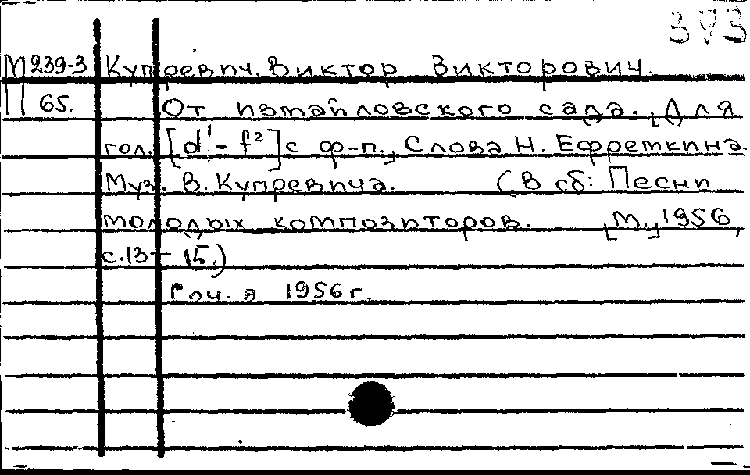 373
М239-3 Купревич, Виктор Викторович.
П 65. От измайловского сада. [Для
гол. [d¹ - f²] с ф-п., Слова Н. Ефреткина.
Муз. В. Купревича. (В сб: Песни
молодых композиторов. [М.,] 1956,
с.13 - 15.)
1956 г.